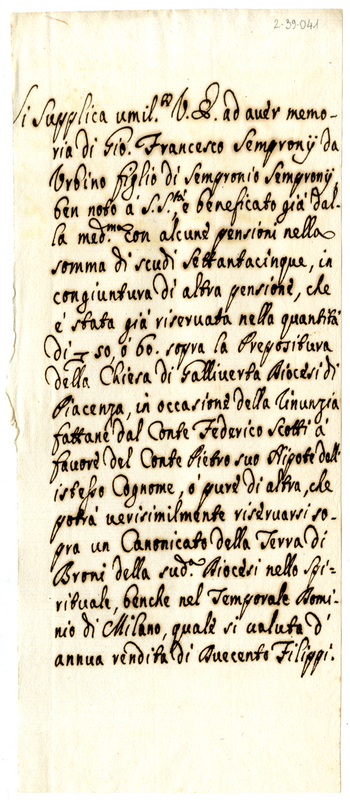 2-39-041
Si Supplica umil.te V. E. ad aver memo-
ria di Gio. Francesco Sempronÿ da
Urbino figlio di Sempronio Sempronÿ,
ben noto á S. S.tà e beneficato già dal-
la med.ma con alcune pensioni nella
somma di scudi settantacinque, in
congiuntura di altra pensione, che
é stata già riservata nella quantità
di 50, ó 60. sopra la Prepositura
della Chiesa di Galliverta Diocesi di
Piacenza, in occasione della rinunzia
fattane dal Conte Federico Scotti á
favore del Conte Pietro suo Nipote dell'
istesso Cognome, ó pure di altra, che
potrà verisimilmente riservarsi so-
pra un Canonicato della Terra di
Broni della sud.a Diocesi nello Spi-
rituale, benche nel Temporale Domi-
nio di Milano, quale si valuta d'
annua rendita di Duecento Filippi.